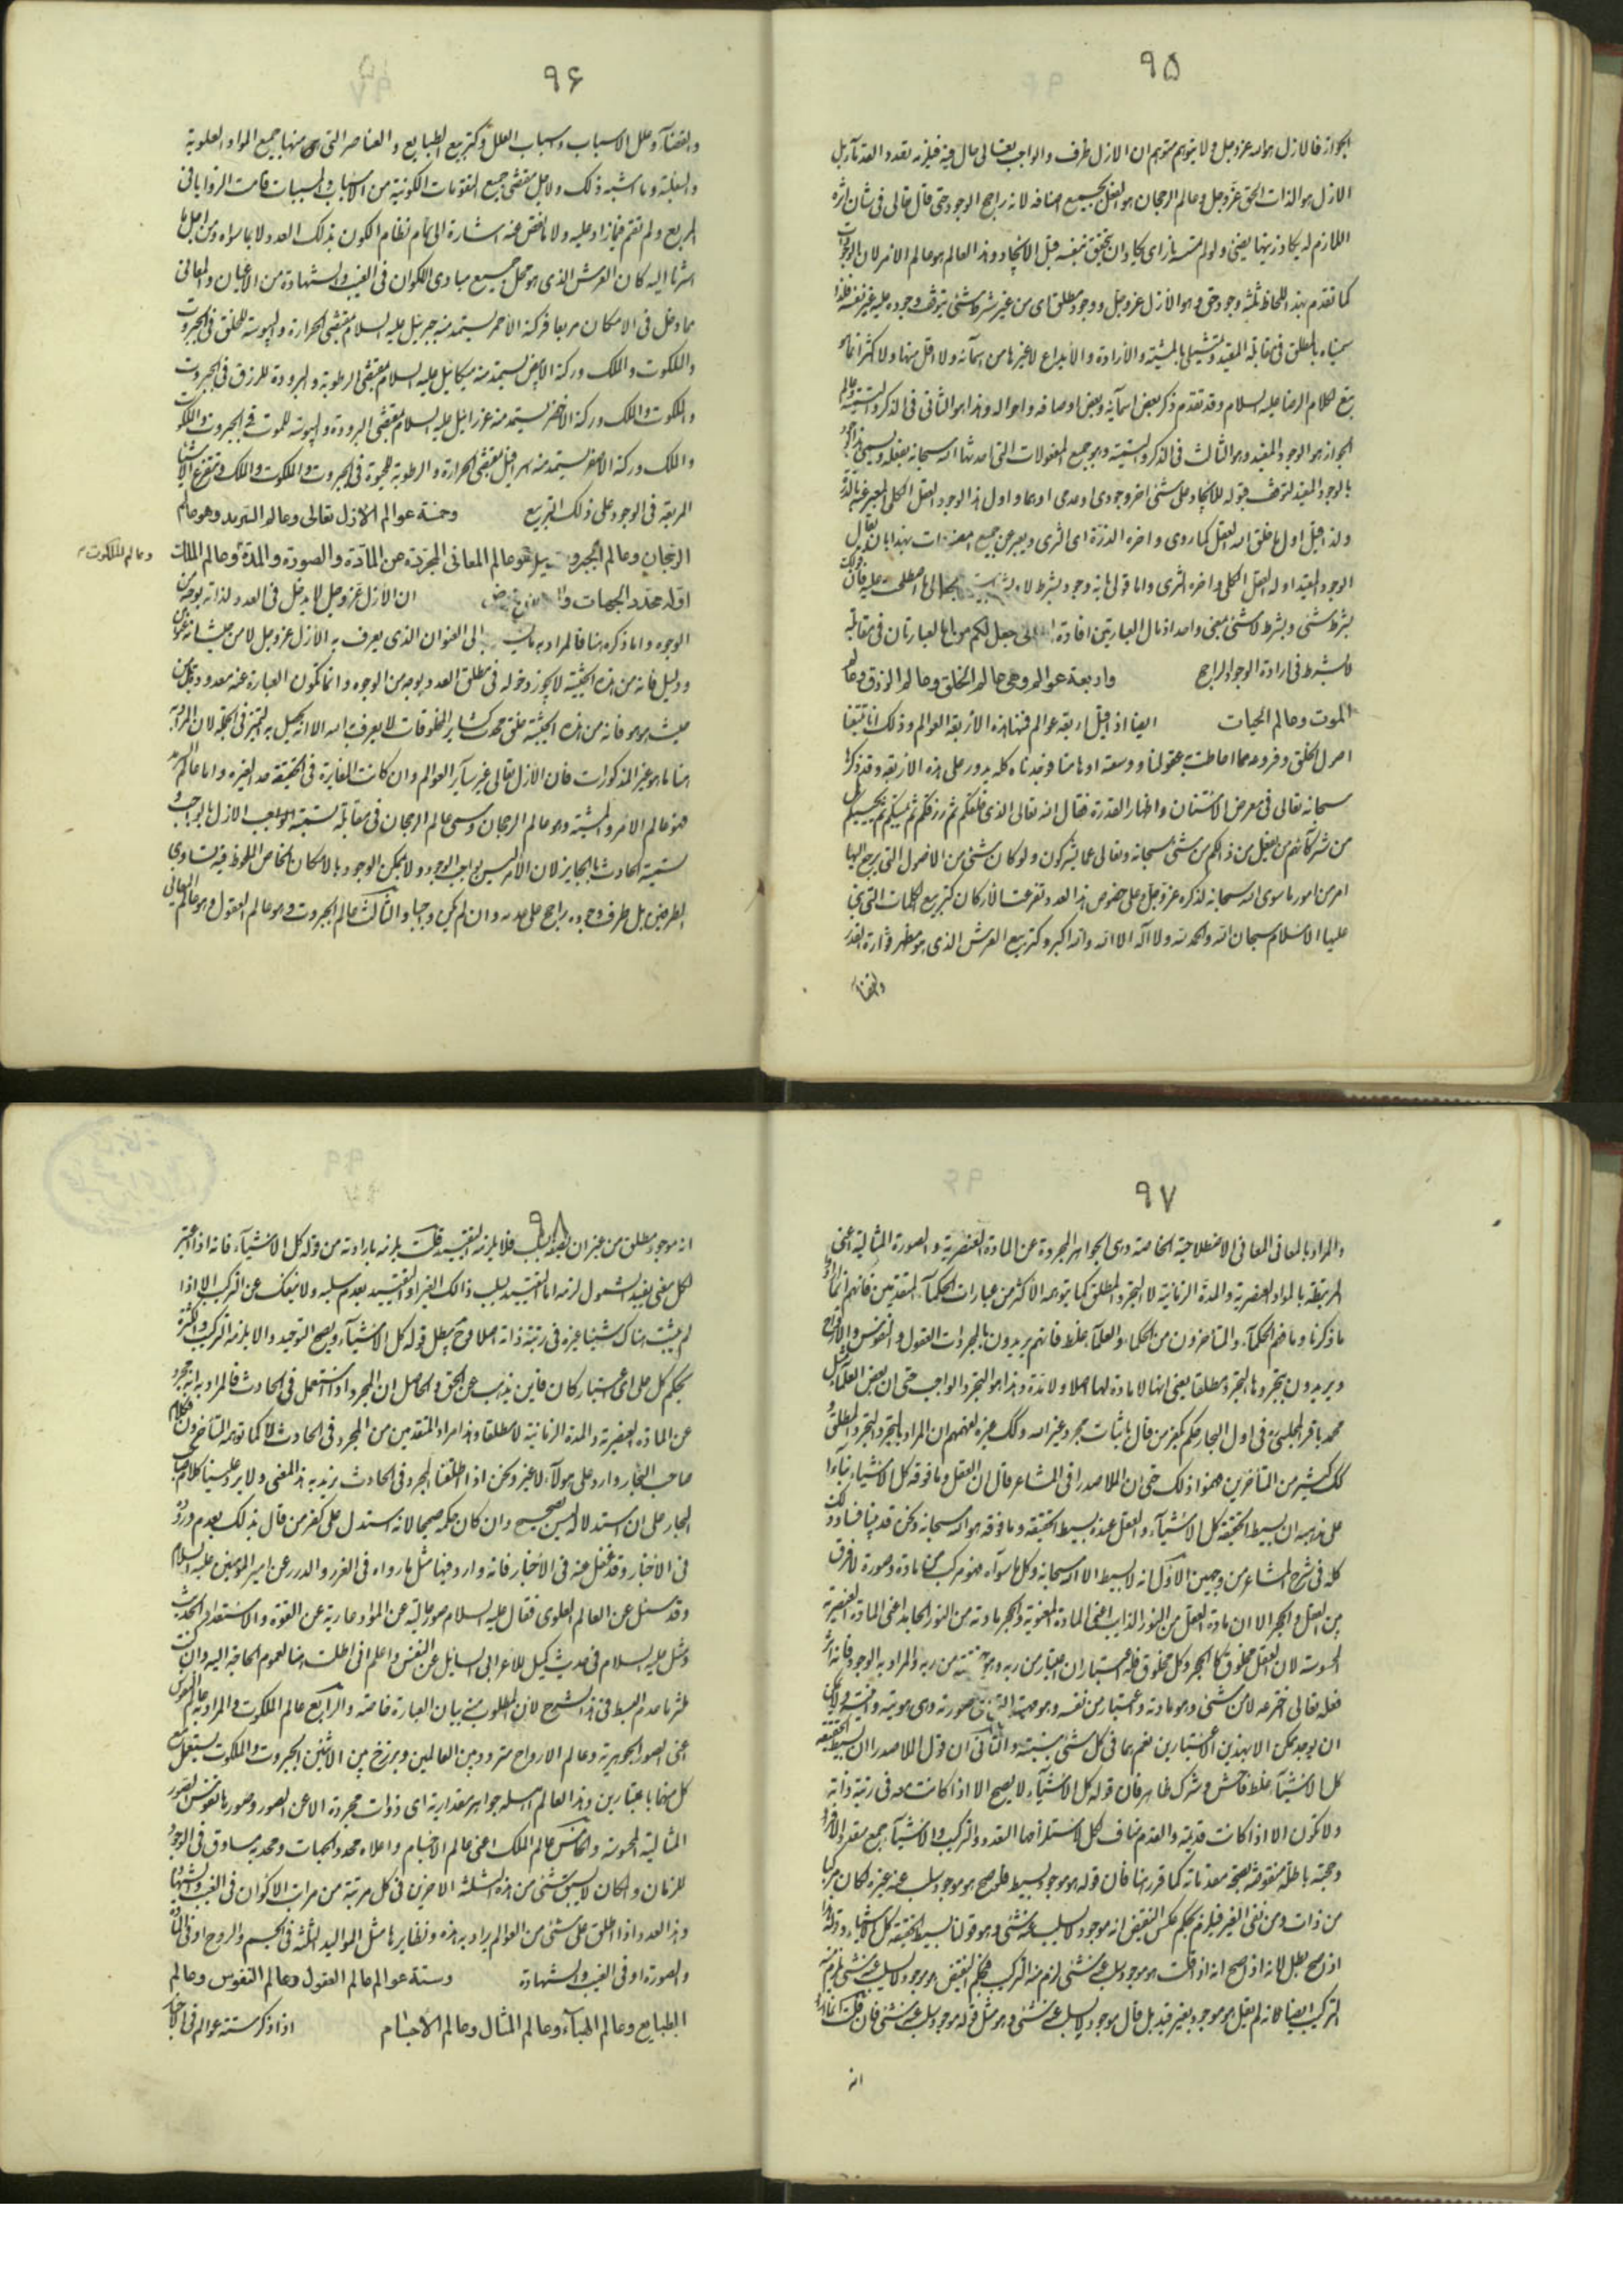 ٩٥
الجواز فالازل هو الله عز وجل ولا يتوهم متوهم ان الازل ظرف والواجب تعالى حال فيه فيلزمه تعدد القدمآء بل
الازل هو الذات الحق عز وجل وعالم الرجحان هو الفعل بجميع اصنافه لانه راجح الوجود حتى قال تعالى في شان اثره
اللازم له يكاد زيتها يضئ ولو لم تمسسه نار اى يكاد ان يتحقق بنفسه قبل الايجاد وهذا العالم هو عالم الامر لان الوجودات
كما تقدم بهذا اللحاظ ثلثة وجود حق وهو الازل عز وجل ووجود مطلق اى من غير شرط شئ يتوقف وجوده عليه غير نفسه فلذا
سميناه بالمطلق فى مقابلة المقيد وتمثيلى بالمشية والارادة والابداع لا غيرها من اسمآئه ولا اقل منها ولا اكثر انما هو
تبع لكلام الرضا عليه السلام وقد تقدم ذكر بعض اسمآئه وبعض اوصافه واحواله وهذا هو الثانى فى الذكر والتسمية وعالم
الجواز هو الوجود المقيد وهو الثالث فى الذكر والتسمية وهو جميع المفعولات التى احدثها الله سبحانه بفعله ويسمى هذا الوجود
بالوجود المقيد لتوقف قبوله للايجاد على شئ اخر وجودى او عدمى او بهما واول هذا الوجود العقل الكلى المعبر عنه بالدرة
ولذا قيل اول ما خلق الله العقل كما روى واخره الذرة اى الثرى ويعبر عن جميع المفعولات بهذا بان يقال
الوجود المقيد اوله العقل الكلى واخره الثرى واما قولى بانه وجود بشرط لا
بشرط شئ وبشرط لا شئ بمعنى واحد اذ مال العبارتين افادة
لا بشرط فى ارادة الوجود الراجح واربعة عوالم وهى عالم الخلق وعالم الرزق وعالم
الموت وعالم الحيات ايضا اذا قيل اربعة عوالم فمنها هذه الاربعة العوالم وذلك انا تتبعنا
اصول الخلق وفروعه مما احاطت به عقولنا ووسعته اوهامنا فوجدناه كله يدور على هذه الاربعة وقد ذكرها
سبحانه تعالى فى معرض الامتنان واظهار القدرة فقال الله تعالى الذى خلقكم ثم رزقكم ثم يميتكم ثم يحييكم هل
من شركآئهم من يفعل من ذلكم من شئ سبحانه وتعالى عما يشركون ولو كان شئ من الاصول التى يرجع اليها
امر من امور ما سوى الله سبحانه لذكره عز وجل وعلى خصوص هذا العدد تفرعت الاركان كتربيع الكلمات التى بنى
عليها الاسلام سبحان الله والحمد لله ولا اله الا الله والله اكبر وكتربيع العرش الذى هو مظهر
والقضآء
٩٦
والقضآء وعلل الاسباب واسباب العلل وكتربيع الطبايع والعناصر التى منها جميع المواد العلوية
والسفلية وما اشبه ذلك ولاجل مقتضى جميع المقومات الكونية من الاسباب والمسببات قامت الزوايا فى
المربع ولم تقم فيما زاد عليه ولا ما نقص عنه اشارة الى تمام نظام الكون بذلك العدد لا بما سواه ومن اجل ما
اشرنا اليه كان العرش الذى هو محل جميع مبادى الاكوان فى الغيب والشهادة من الاعيان والمعانى
مما دخل فى الامكان مربعا فركنه الاحمر يستمد منه جبرئيل عليه السلام مقتضى الحرارة واليبوسة للخلق فى الجبروت
والملكوت والملك وركنه الابيض يستمد منه ميكائيل عليه السلام مقتضى الرطوبة والبرودة للرزق فى الجبروت
والملكوت والملك وركنه الاخضر يستمد منه عزرائيل عليه السلام مقتضى البرودة واليبوسة للموت فى الجبروت والملكوت
والملك وركنه الاصفر يستمد منه اسرافيل مقتضى الحرارة والرطوبة للحيوة فى الجبروت والملكوت والملك وتتفرع الاشيآء
المربعة فى الوجود على ذلك التربيع وخمسة عوالم الازل تعالى وعالم السرمد وهو عالم
الرجحان وعالم الجبروت وهو عالم المعانى المجردة عن المادة والصورة والمدة وعالم الملك
وعالم الملكوت
اوله محدد الجهات ان الازل عز وجل لا يدخل فى العدد لذاته بوجه من
الوجوه واما ذكره هنا فالمراد به الى العنوان الذى يعرف به الازل عز وجل لا من حيث انه عنوان
ودليل فانه من هذه الحيثية لا يجوز دخوله فى مطلق العدد بوجه من الوجوه وانما تكون العبارة عنه معدودة من
حيث هو هو فانه من هذه الحيثية خلق محدث كساير المخلوقات لا يعرف به الله الا انه يحصل به التميز فى الجملة لان المراد به
هنا ما هو غير المذكورات فان الازل تعالى غير سآير العوالم وان كانت المغايرة فى الحقيقة حد لغيره واما عالم السرمد
فهو عالم الامر والمشية وهو عالم الرجحان وسمى عالم الرجحان فى مقابلة تسمية الواجب الازل بالوجوب
تسمية الحادث بالجايز لان الامر ليس بواجب الوجود ولا بممكن الوجود بالامكان الخاص الملحوظ فيه تساوى
الطرفين بل طرف وجوده راجح على عدمه وان لم يكن واجبا والثالث عالم الجبروت وهو عالم العقول وهو عالم المعانى
٩٧
والمراد بالمعانى المعانى الاصطلاحية الخاصة وهى الجواهر المجردة عن المادة العنصرية والصورة المثالية اعنى
المرتبطة بالمواد العنصرية والمدة الزمانية لا التجرد المطلق كما يتوهمه الاكثر من عبارات الحكمآء المتقدمين فانهم انما ارادوا
ما ذكرنا وما فهم الحكمآء والمتاخرون من الحكماء والعلمآء غلط فانهم يريدون بالمجردات العقول والنفوس والارواح
ويريدون بتجردها التجرد مطلقا يعنى انها لا مادة لها اصلا ولا مدة وهذا هو التجرد الواجب حتى ان بعض العلمآء مثل
محمد باقر المجلسى فى اول البحار حكم بكفر من قال باثبات مجرد غير الله وكذلك غيره لفهمهم ان المراد بالتجرد التجرد المطلق و
كذلك كثير من المتاخرين فهموا ذلك حتى ان الملا صدرا فى المشاعر قال ان العقل وما فوقه كل الاشيآء بنآء
على مذهبه ان بسيط الحقيقة كل الاشيآء والعقل عنده بسيط الحقيقة وما فوقه هو الله سبحانه ونحن قد بينا فساد ذلك
كله فى شرح المشاعر من وجهين الاول انه لا بسيط الا الله سبحانه وكل ما سواه فهو مركب من مادة وصورة لا فرق
بين العقل والحجر الا ان مادة العقل من النور الذايب اعنى المادة المعنوية والحجر مادته من النور الجامد اعنى المادة العنصرية
المحسوسة لان العقل مخلوق كالحجر وكل مخلوق فله اعتباران اعتبار من ربه والمراد به الوجود فانه اثر
فعله تعالى اخترعه لا من شئ وهو مادته واعتبار من نفسه وهو مهيته صورته وهى هويته
ان يوجد ممكن الا بهذين الاعتبارين نعم هما فى كل شئ بنسبته والثانى ان قول الملا صدرا ان بسيط الحقيقة
كل الاشيآء غلط فاحش وشرك ظاهر فان قوله كل الاشيآء لا يصح الا اذا كانت معه فى رتبة ذاته
ولا تكون الا اذا كانت قديمة والقدم مناف لكل لاستلزامها التعدد والتركيب والاشيآء جمع متعدد الافراد
وحجته باطلة منقوضة بصحة مقدماته كما قرر هنا فان قوله هو موجود بسيط فلو صح هو موجود سلب عنه غيره لكان مركبا
من ذات ومن نفى الغير فيلزم بحكم عكس النقيض انه موجود لا يسلب عنه شئ وهو قولنا بسيط الحقيقة كل الاشيآء وقوله هذا
اذا صح بطل لانه اذا صح انه اذا قلت هو موجود سلب عنه شئ لزم منه التركيب فبحكم النقيض هو موجود لا يسلب عنه شئ لزم منه
التركيب ايضا لانه لم يقل هو موجود بغير قيد بل قال موجود لا يسلب عنه شئ وهو مثل قوله موجود سلب عنه شئ فان قلت انما اراد
انه
٩٨
انه موجود مطلق من غير ان يقيد بسلب فلا يلزمه التقييد قلت يلزمه بارادته من قوله كل الاشيآء فانه اذا اعتبر
لكل معنى يفيد الشمول لزمه اما التقييد بسلب ذلك الغير او التقييد بعدم سلبه ولا ينفك عن التركيب الا اذا
لم يثبت هناك شيئا غيره فى رتبة ذاته اصلا وح يبطل قوله كل الاشيآء ويصح التوحيد والا يلزمه التركيب والكثرة
بحكم كل على اى اعتبار كان فاين يذهب عن الحق والحاصل ان المجرد اذا استعمل فى الحادث فالمراد به انه مجرد
عن المادة العنصرية والمدة الزمانية لا مطلقا وهذا مراد المتقدمين من المجرد فى الحادث لا كما توهمه المتاخرون فكلام
صاحب البحار وارد على هولآء لا غير ونحن اذا اطلقنا المجرد فى الحادث نريد به هذا المعنى ولا يرد علينا كلام صاحب
البحار على ان استدلاله ليس بصحيح وان كان حكمه صحيحا لانه استدل على كفر من قال بذلك بعدم وروده
فى الاخبار وقد غفل عنه فى الاخبار فانه وارد فيها مثل ما رواه فى الغرر والدرر عن امير المؤمنين عليه السلام
وقد سئل عن العالم العلوى فقال عليه السلام صور عالية عن المواد عارية عن القوة والاستعداد الحديث
ومثل عليه السلام فى حديث كميل للاعرابى السايل عن النفس واعلم انى اطلت هنا لعموم الحاجة اليه وان كنت
ملتزما عدم البسط فى هذا الشرح لان المطلوب منه بيان العبارة خاصة والرابع عالم الملكوت والمراد به عالم النفوس
اعنى الصور الجوهرية وعالم الارواح متردد بين العالمين وبرزخ بين الاثنين الجبروت والملكوت يستعمل مع
كل منهما باعتبارين وهذا العالم اسفله جواهر مقدارية اى ذوات مجردة الا عن الصور وصورها نفوس الصور
المثالية المحسوسة والخامس عالم الملك اعنى عالم الاجسام واعلاه محدد الجهات ومحدبه يساوق فى الوجود
للزمان والمكان لا يسبق شئ من هذه الثلثة الاخرين فى كل مرتبة من مراتب الاكوان فى الغيب والشهادة
وهذا العدد اذا اطلق على شئ من العوالم يراد به هذه ونظايرها مثل المواليد الثلثة فى الجسم والروح او فى المادة
والصورة او فى الغيب والشهادة وستة عوالم عالم العقول وعالم النفوس وعالم
الطبايع وعالم الهبآء وعالم المثال وعالم الاجسام اذا ذكر ستة عوالم فى